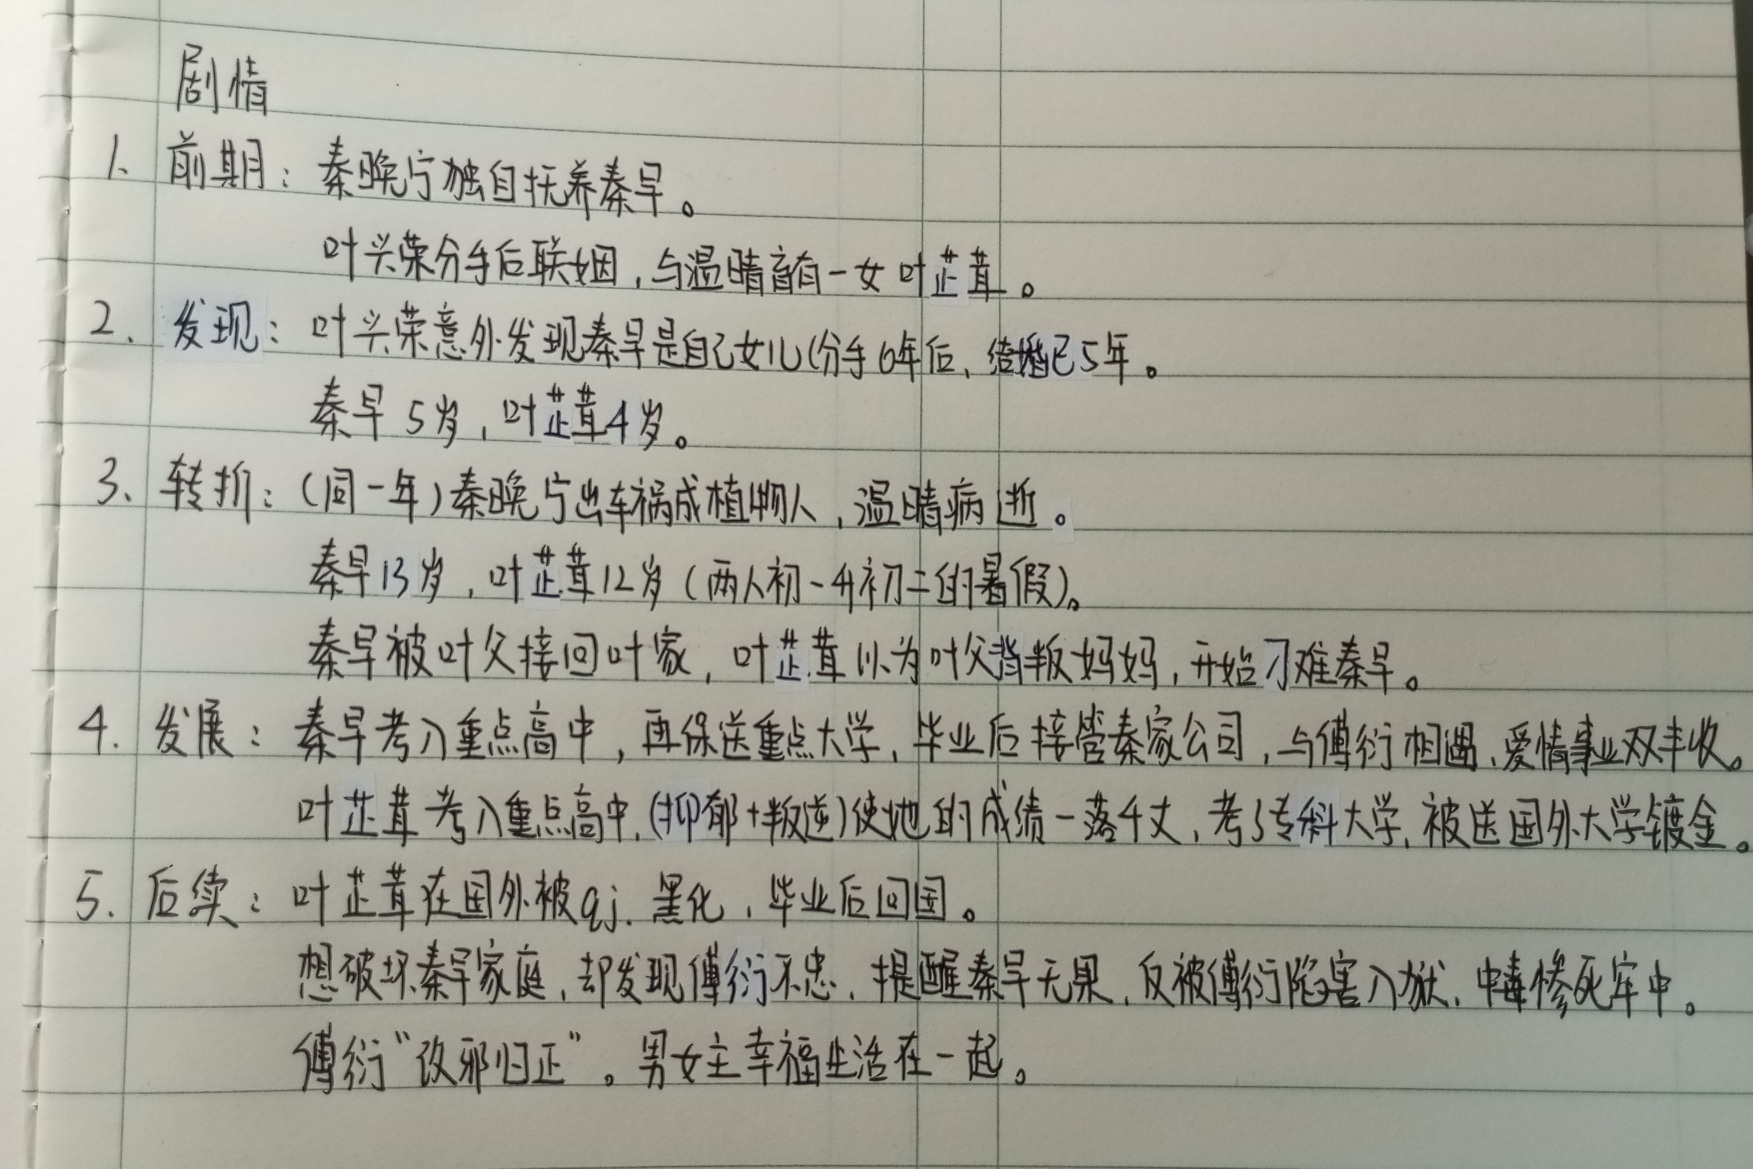 剧情
1、前期：秦晚宁独自抚养秦早。
叶兴荣分手后联姻，与温晴育有一女叶芷茸。
2、发现：叶兴荣意外发现秦早是自己女儿(分手6年后、结婚已5年。
秦早5岁，叶芷茸4岁。
3、转折：(同一年)秦晚宁出车祸成植物人，温晴病逝。
秦早13岁，叶芷茸12岁(两人初一升初二的暑假)。
秦早被叶父接回叶家，叶芷茸以为叶父背叛妈妈，开始刁难秦早。
4、发展：秦早考入重点高中，再保送重点大学，毕业后接管秦家公司，与傅衍相遇、爱情事业双丰收。
叶芷茸考入重点高中，(抑郁+叛逆)使她的成绩一落千丈，考了专科大学，被送国外大学镀金。
5、后续：叶芷茸在国外被qj、黑化，毕业后回国。
想破坏秦早家庭，却发现傅衍不忠，提醒秦早无果，反被傅衍陷害入狱，中毒惨死牢中。
傅衍“改邪归正”。男女主幸福生活在一起。